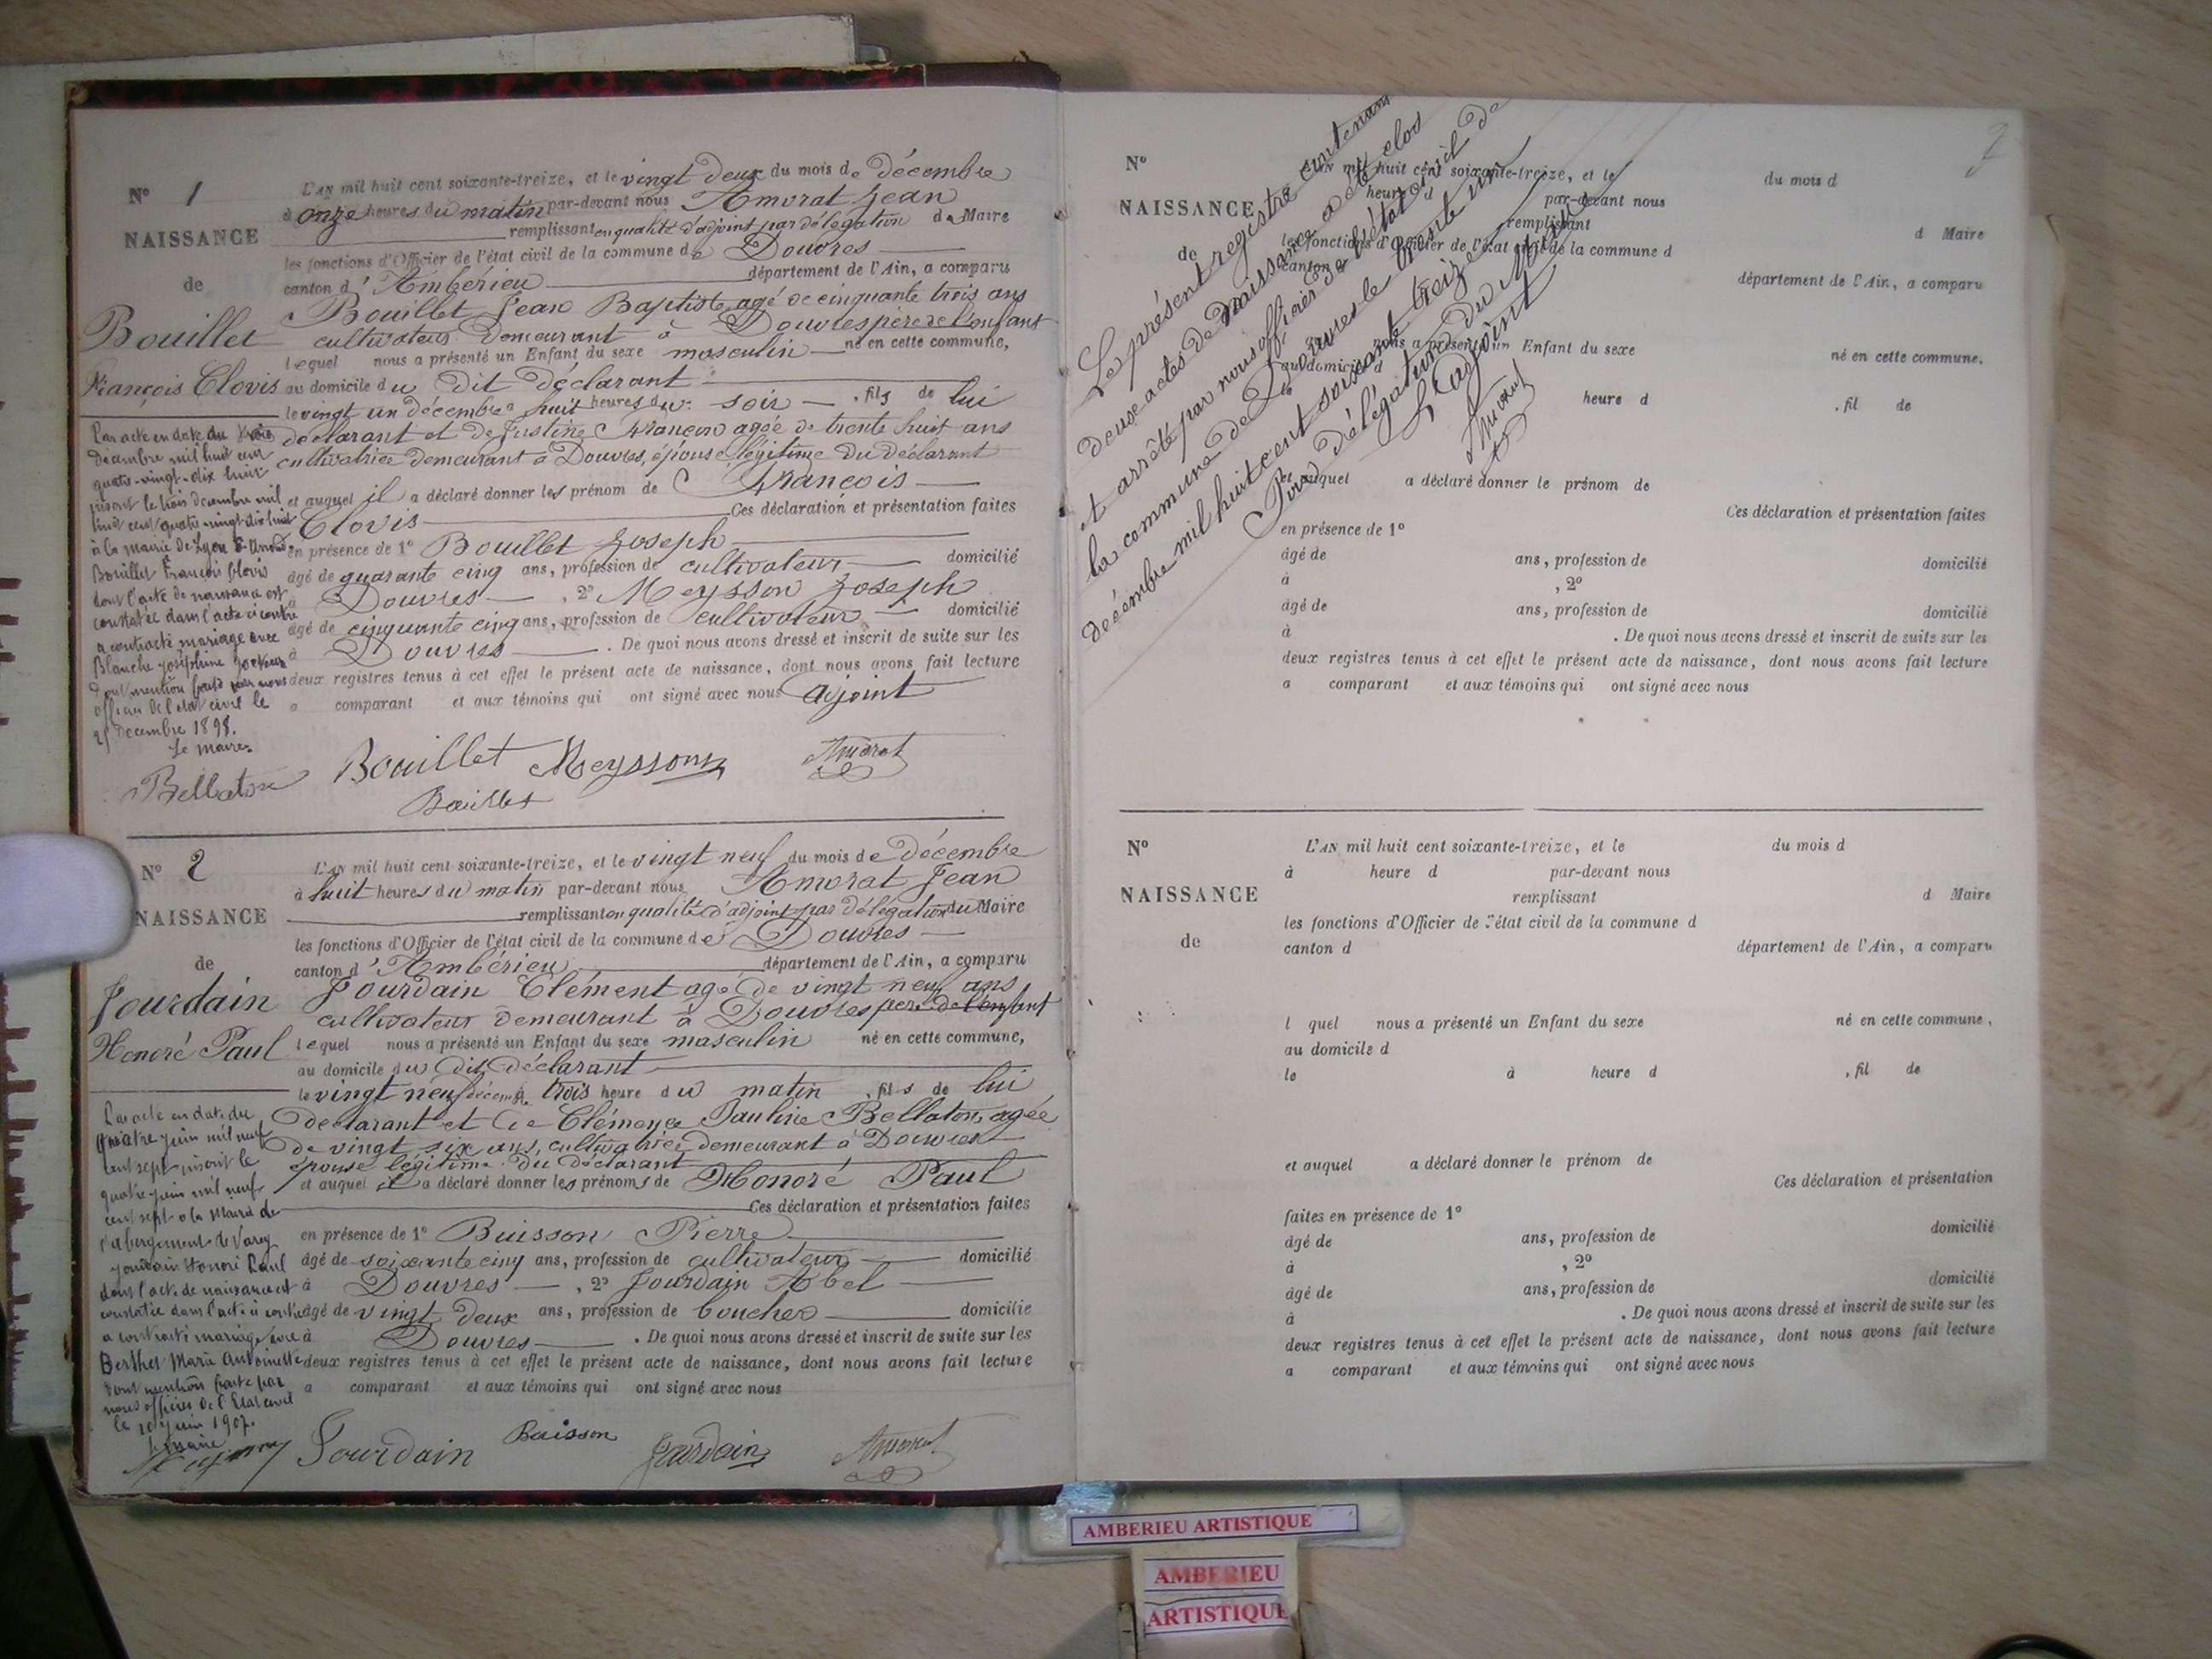 N° 1
NAISSANCE
de
Bouillet
François Clovis
L'AN mil huit cent soixante-treize, et le vingt deux du mois de décembre
à onze heures du matin par-devant nous Amorat Jean
remplissant en qualité d'adjoint par délégation du Maire
les fonctions d'Officier de l'état civil de la commune de Douvres
canton d'Ambérieu département de l'Ain, a comparu
Bouillet Jean Baptiste, agé de cinquante trois ans
cultivateur demeurant à Douvres père de l'enfant
lequel nous a présenté un Enfant du sexe masculin né en cette commune,
au domicile du dit déclarant
le vingt un décembre à huit heures du soir, fils de lui
déclarant et de Justine Françon agée de trente huit ans
cultivatrice demeurant à Douvres, épouse légitime du déclarant
et auquel il a déclaré donner les prénom de François
Clovis Ces déclaration et présentation faites
en présence de 1° Bouillet Joseph
âgé de quarante cinq ans, profession de cultivateur domicilié
à Douvres, 2° Meysson Joseph
âgé de cinquante cinq ans, profession de cultivateur domicilié
à Douvres. De quoi nous avons dressé et inscrit de suite sur les
deux registres tenus à cet effet le présent acte de naissance, dont nous avons fait lecture
a comparant et aux témoins qui ont signé avec nous adjoint
Par acte en date du trois
décembre mil huit cent
quatre-vingt-dix huit
inscrit le trois décembre mil
huit cent quatre-vingt-dix huit
à la mairie de Lyon
Bouillet François Clovis
dont l'acte de naissance est
constatée dans l'acte ci contre
a contracté mariage avec
Blanche Joséphine
dont mention faite par nous
officier de l'état civil le
Décembre 1898.
Le maire
Bellaton
Bouillet Meysson Amorat
Bouillet
N° 2
NAISSANCE
de
Jourdain
Honoré Paul
L'AN mil huit cent soixante-treize, et le vingt neuf du mois de décembre
à huit heures du matin par-devant nous Amorat Jean
remplissant en qualité d'adjoint par délégation du Maire
les fonctions d'Officier de l'état civil de la commune de Douvres
canton d'Ambérieu département de l'Ain, a comparu
Jourdain Clément agé de vingt neuf ans
cultivateur demeurant à Douvres père de l'enfant
lequel nous a présenté un Enfant du sexe masculin né en cette commune,
au domicile du dit déclarant
le vingt neuf décemb. à trois heure du matin, fils de lui
déclarant et de Clémence Pauline Bellaton, agée
de vingt six ans, cultivatrice demeurant à Douvres
épouse légitime du déclarant
et auquel il a déclaré donner les prénoms de Honoré Paul
Ces déclaration et présentation faites
en présence de 1° Buisson Pierre
âgé de soixante cinq ans, profession de cultivateur domicilié
à Douvres, 2° Jourdain Abel
âgé de vingt deux ans, profession de boucher domicilié
à Douvres. De quoi nous avons dressé et inscrit de suite sur les
deux registres tenus à cet effet le présent acte de naissance, dont nous avons fait lecture
a comparant et aux témoins qui ont signé avec nous
Par acte en date du
quatre juin mil neuf
cent sept inscrit le
quatre juin mil neuf
cent sept à la Mairie de
l'abergement de Varey
Jourdain Honoré Paul
dont l'acte de naissance est
constatée dans l'acte ci contre
a contracté mariage avec
Berthet Marie Antoinette
dont mention faite par
nous officier de l'Etat civil
le 10 Juin 1907.
Le maire
Jourdain Buisson Jourdain Amorat
7
Le présent registre contenant
deux actes de naissance a été clos
et arrêté par nous officier de l'état civil de
la commune de Douvres le trente un
décembre mil huit cent soixante treize
Pour délégation du Maire
L'adjoint
Amorat
N°
NAISSANCE
de
L'AN mil huit cent soixante-treize, et le du mois d
heure d par-devant nous
remplissant d Maire
les fonctions d'Officier de l'état civil de la commune d
canton d département de l'Ain, a comparu
nous a présenté un Enfant du sexe né en cette commune,
au domicile d
heure d , fil de
et auquel a déclaré donner le prénom de
Ces déclaration et présentation faites
en présence de 1°
âgé de ans, profession de domicilié
à , 2°
âgé de ans, profession de domicilié
à . De quoi nous avons dressé et inscrit de suite sur les
deux registres tenus à cet effet le présent acte de naissance, dont nous avons fait lecture
a comparant et aux témoins qui ont signé avec nous
N°
NAISSANCE
de
L'AN mil huit cent soixante-treize, et le du mois d
à heure d par-devant nous
remplissant d Maire
les fonctions d'Officier de l'état civil de la commune d
canton d département de l'Ain, a comparu
l quel nous a présenté un Enfant du sexe né en cette commune,
au domicile d
le à heure d , fil de
et auquel a déclaré donner le prénom de
Ces déclaration et présentation
faites en présence de 1°
âgé de ans, profession de domicilié
à , 2°
âgé de ans, profession de domicilié
à . De quoi nous avons dressé et inscrit de suite sur les
deux registres tenus à cet effet le présent acte de naissance, dont nous avons fait lecture
a comparant et aux témoins qui ont signé avec nous
AMBERIEU ARTISTIQUE
AMBERIEU
ARTISTIQUE